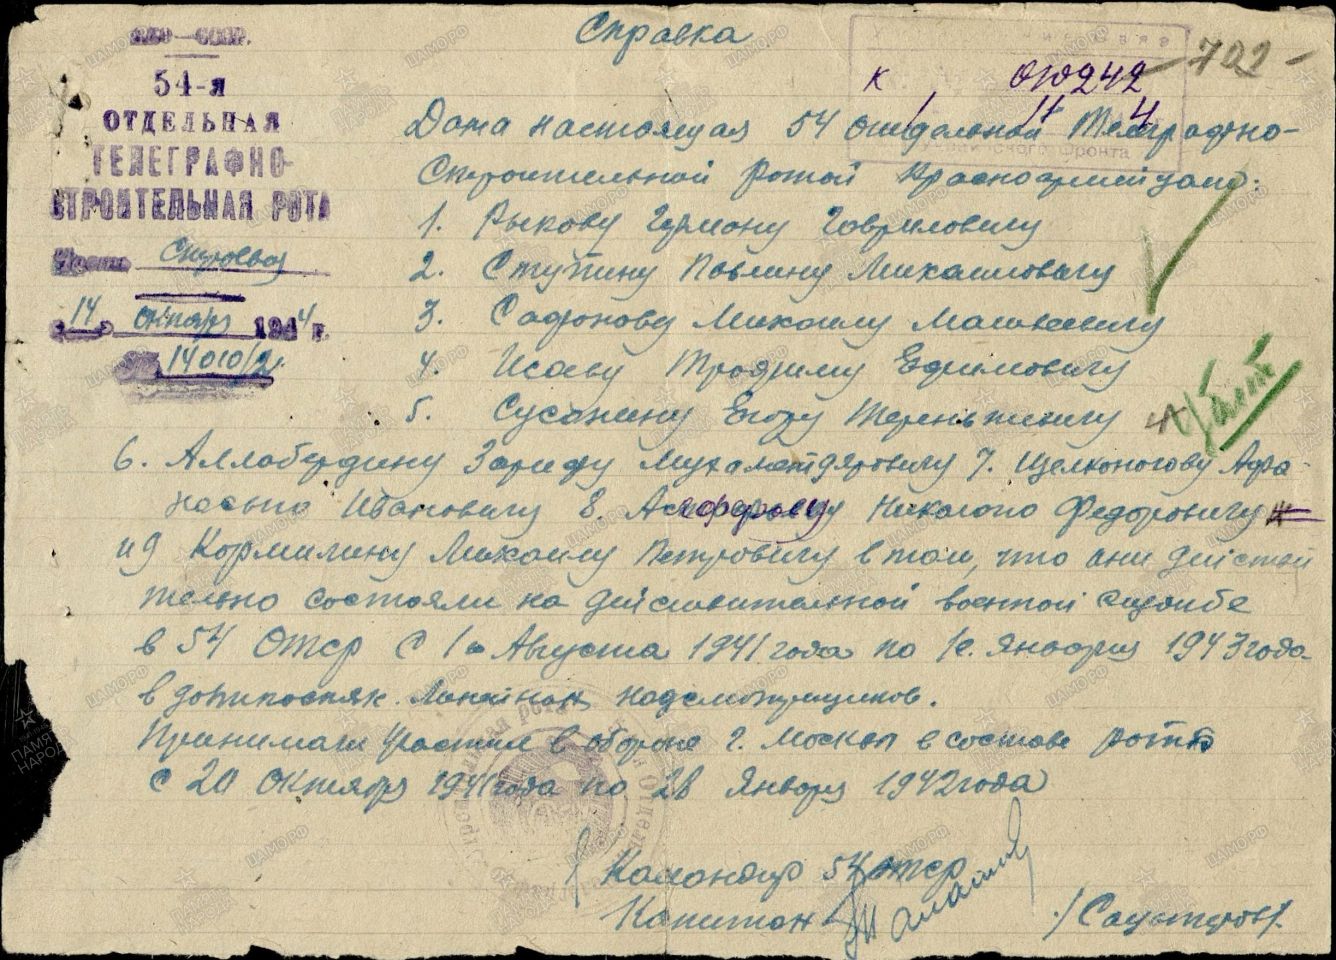 Справка
НКО — СССР.
54-я
ОТДЕЛЬНАЯ
ТЕЛЕГРАФНО-
СТРОИТЕЛЬНАЯ РОТА
Часть Строевая
14 Октября 1944 г.
№ 14010/2.
К 010242 — 702 —
11 4
фронта
Дана настоящая 54 отдельной Телеграфно-
Строительной ротой Красноармейцам:
1. Рыкову Герману Гавриловичу
2. Ступину Павлину Михайловичу
3. Сафонову Михаилу Матвеевичу
4. Исаеву Трофиму Ефимовичу
5. Сусанину Егору Терентьевичу
6. Аллабердину Зарифу Мухаметдяровичу 7. Щелконогову Афа-
насью Ивановичу 8. Николаю Федоровичу
и 9 Кормилину Михаилу Петровичу в том, что они действи
тельно состояли на действительной военной службе
в 54 ОТСР с 1го Августа 1941 года по 1е. Января 1943 года
в должностях. Линейных надсмотрщиков.
Принимали участие в обороне г. Москвы в составе роты
с 20 Октября 1941 года по 28 Января 1942 года
Командир 54 ОТСР
Капитан